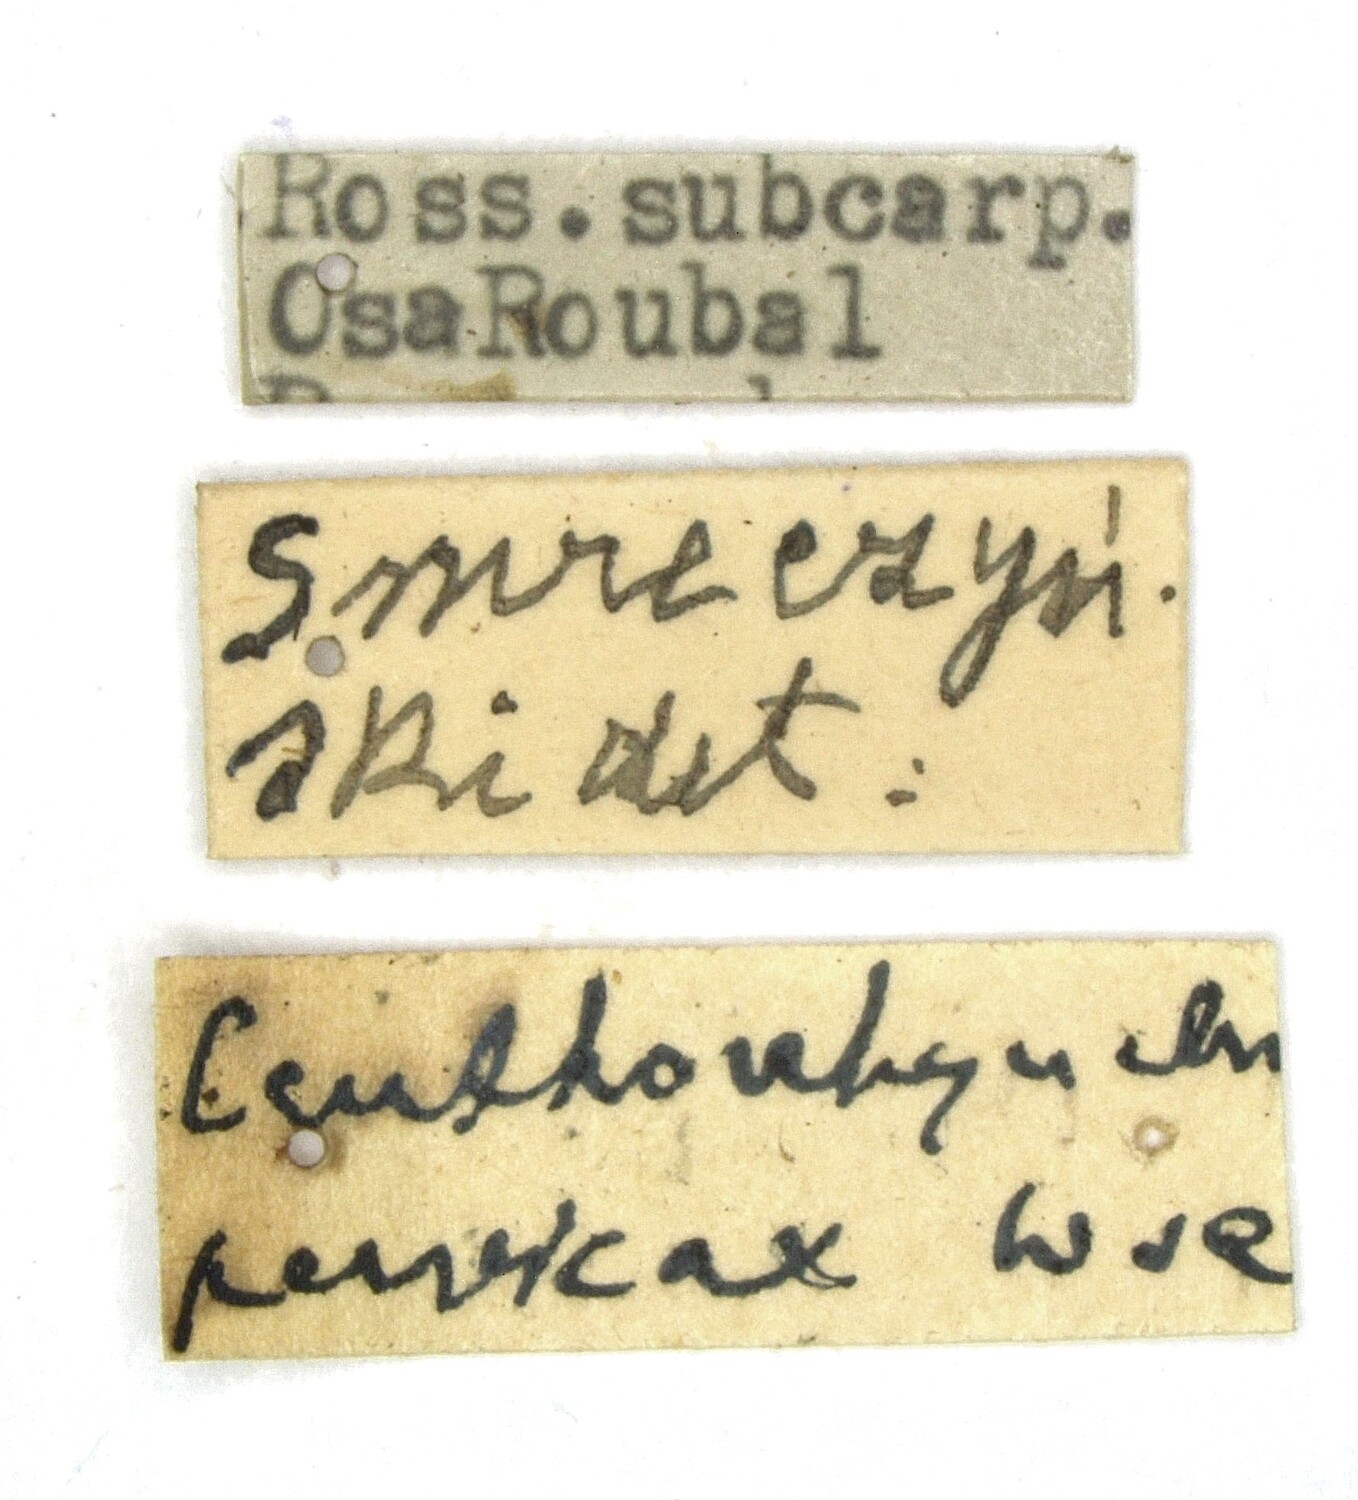 Ross.subcarp.
OsaRoubal
Smreczyń.
ski det.
Ceuthorrhynchu
pervicax Wse